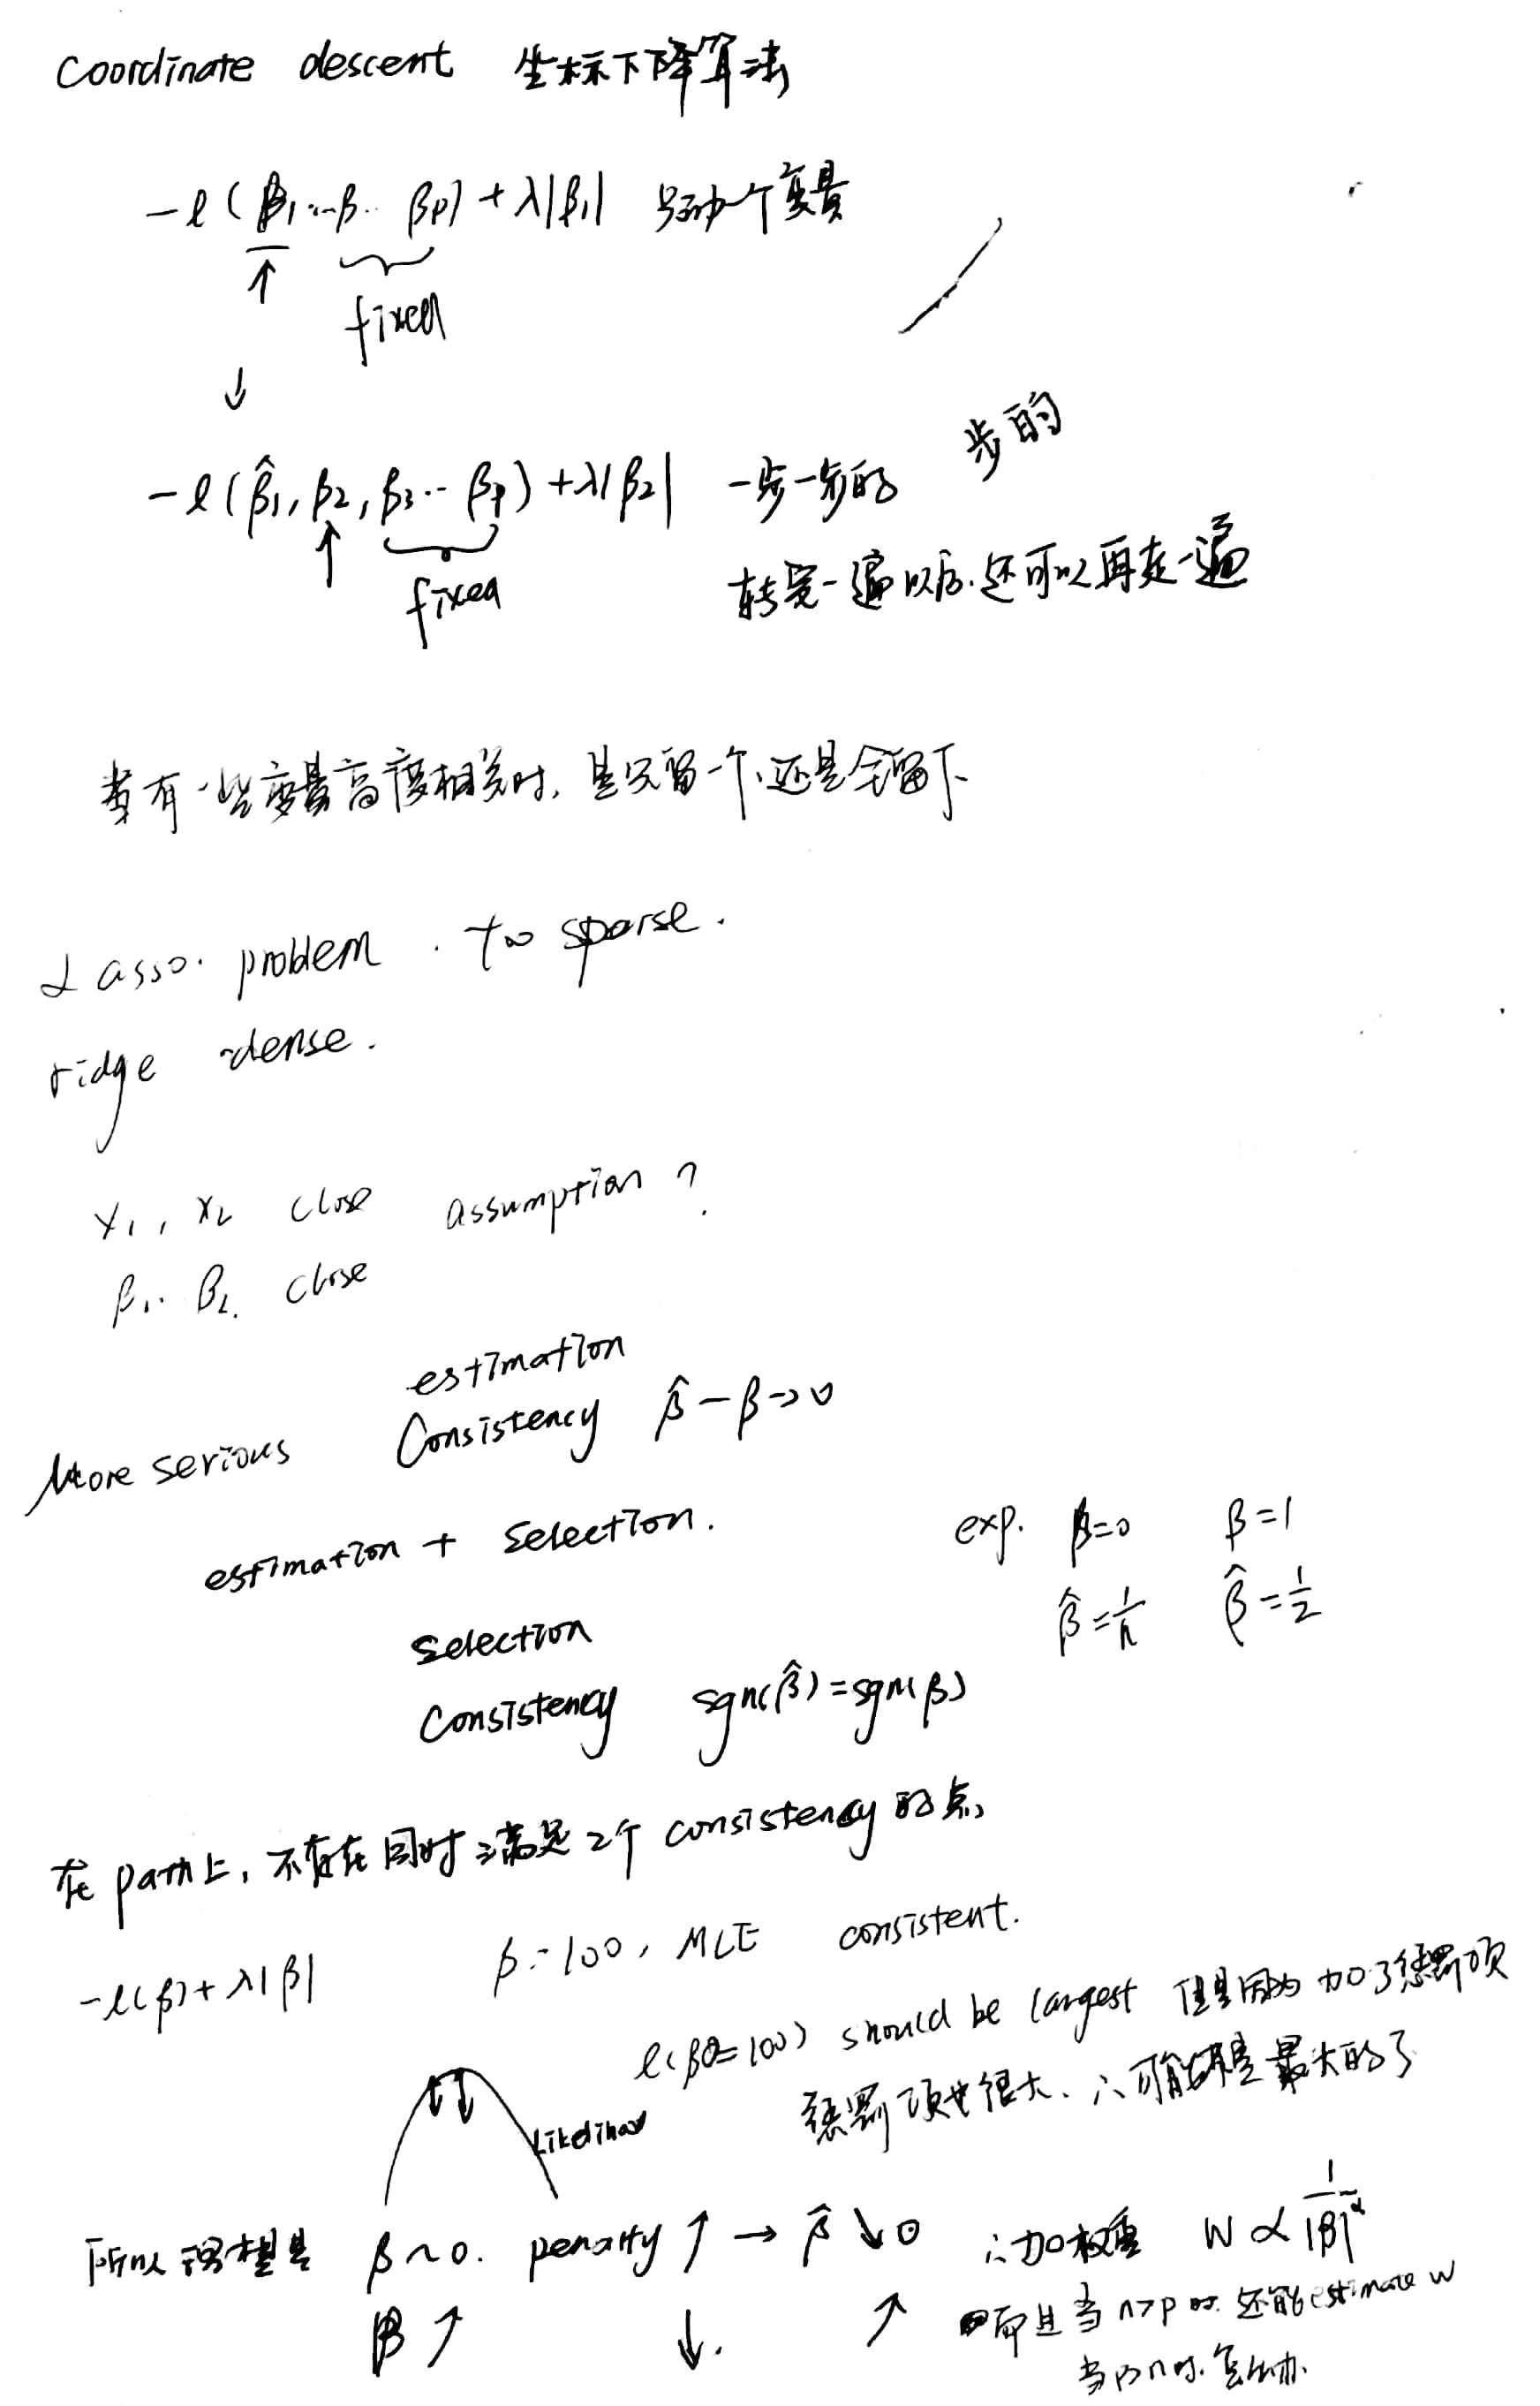 coordinate descent 坐标下降算法
-ℓ(β1...β.. βp) + λ|β1| 只动一个变量
↑ fixed
↓
步的
-ℓ(β̂1, β2, β3... βp) + λ|β2| 一步一步的
↑ fixed
转完一遍以后.还可以再走一遍
当有一些变量高度相关时, 是只留一个,还是全留下
Lasso. problem . too sparse.
ridge dense.
x1, x2 close assumption ?
β1.. β2. close
estimation
More serious Consistency β̂ - β → 0
estimation + selection.
exp. β=0 β=1
β̂=1/n β̂=1/2
selection
Consistency sgn(β̂)=sgn(β)
在path上, 不存在同时满足2个 consistency的点
-ℓ(β)+λ|β| β=100, MLE consistent.
ℓ(β=100) should be largest 但是因为加了惩罚项
惩罚项也很大、∴可能不是最大的了
Likelihood
所以 希望是 β~0. penalty ↑ → β̂ ↓ 0 ∴加权重 W ∝ 1/|β̃|^α
β ↑ ↓. ↑ 而且当 n>p 时. 还能estimate w
当p>n时.怎么办.